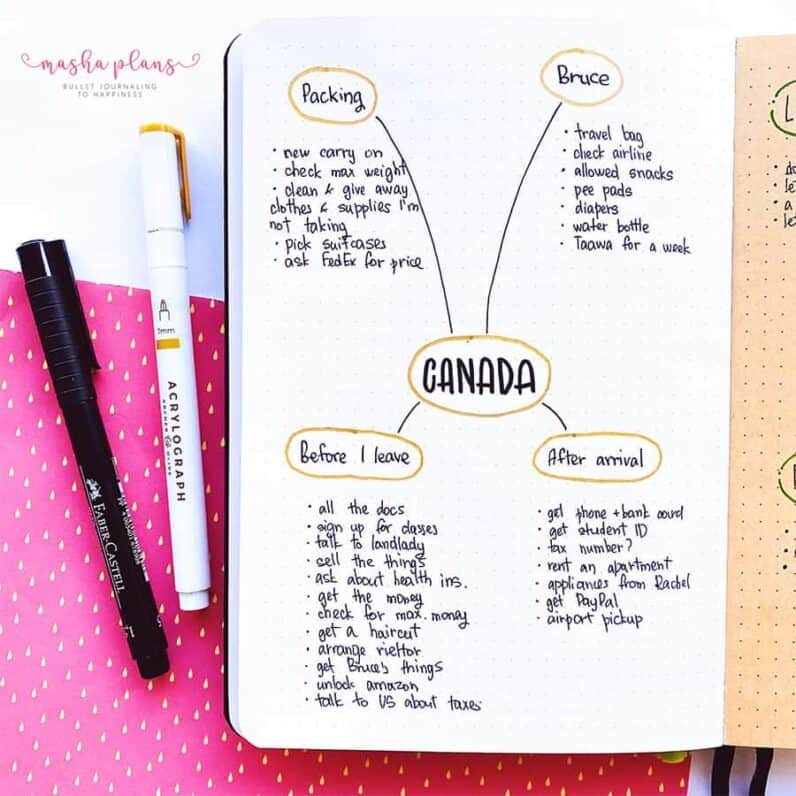 masha plans
BULLET JOURNALING
TO HAPPINESS
Packing
• new carry on
• check max weight
• clean & give away
clothes & supplies I'm
not taking
• pick suitcases
• ask FedEx for price
Bruce
• travel bag
• check airline
• allowed snacks
• pee pads
• diapers
• water bottle
• Taawa for a week
CANADA
Before I leave
• all the docs
• sign up for classes
• talk to landlady
• sell the things
• ask about health ins.
• get the money
• check for max. money
• get a haircut
• arrange
• get Bruce's things
• unlock amazon
• talk to US about taxes
After arrival
• get phone + bank card
• get student ID
• tax number?
• rent an apartment
• appliances from Rachel
• get PayPal
• airport pickup
1mm
ACRYLOGRAPH
ARCHER & OLIVE
FABER-CASTELL
L